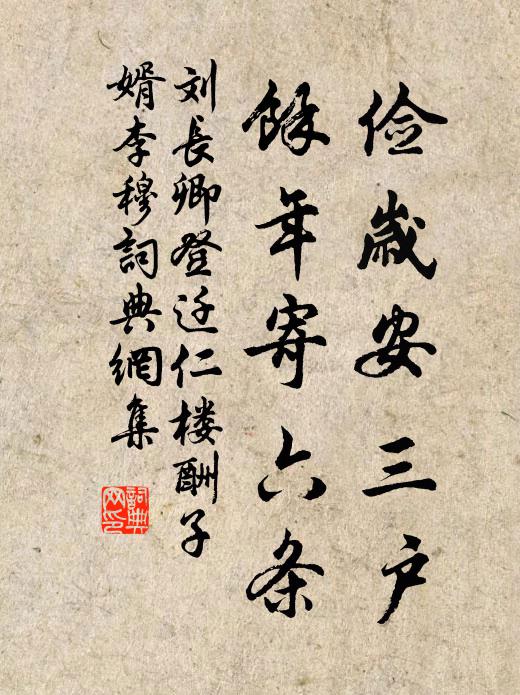 俭歳安三户
餘年寄六条
刘長卿登迁仁楼酬子
婿李穆詞典網集
詞典網印